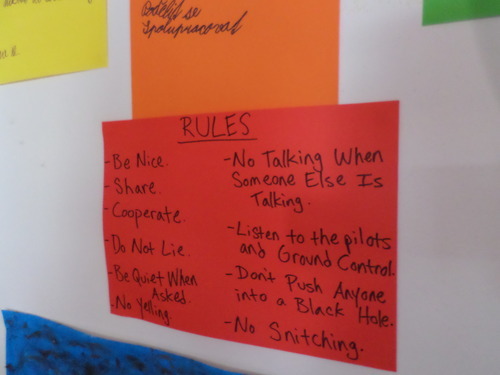 Spolupracoval
RULES
- Be Nice.
- Share.
- Cooperate.
- Do Not Lie.
- Be Quiet When
Asked.
- No Yelling.
- No Talking When
Someone Else Is
Talking.
- Listen to the pilots
and Ground Control.
- Don't Push Anyone
into a Black Hole.
- No Snitching.